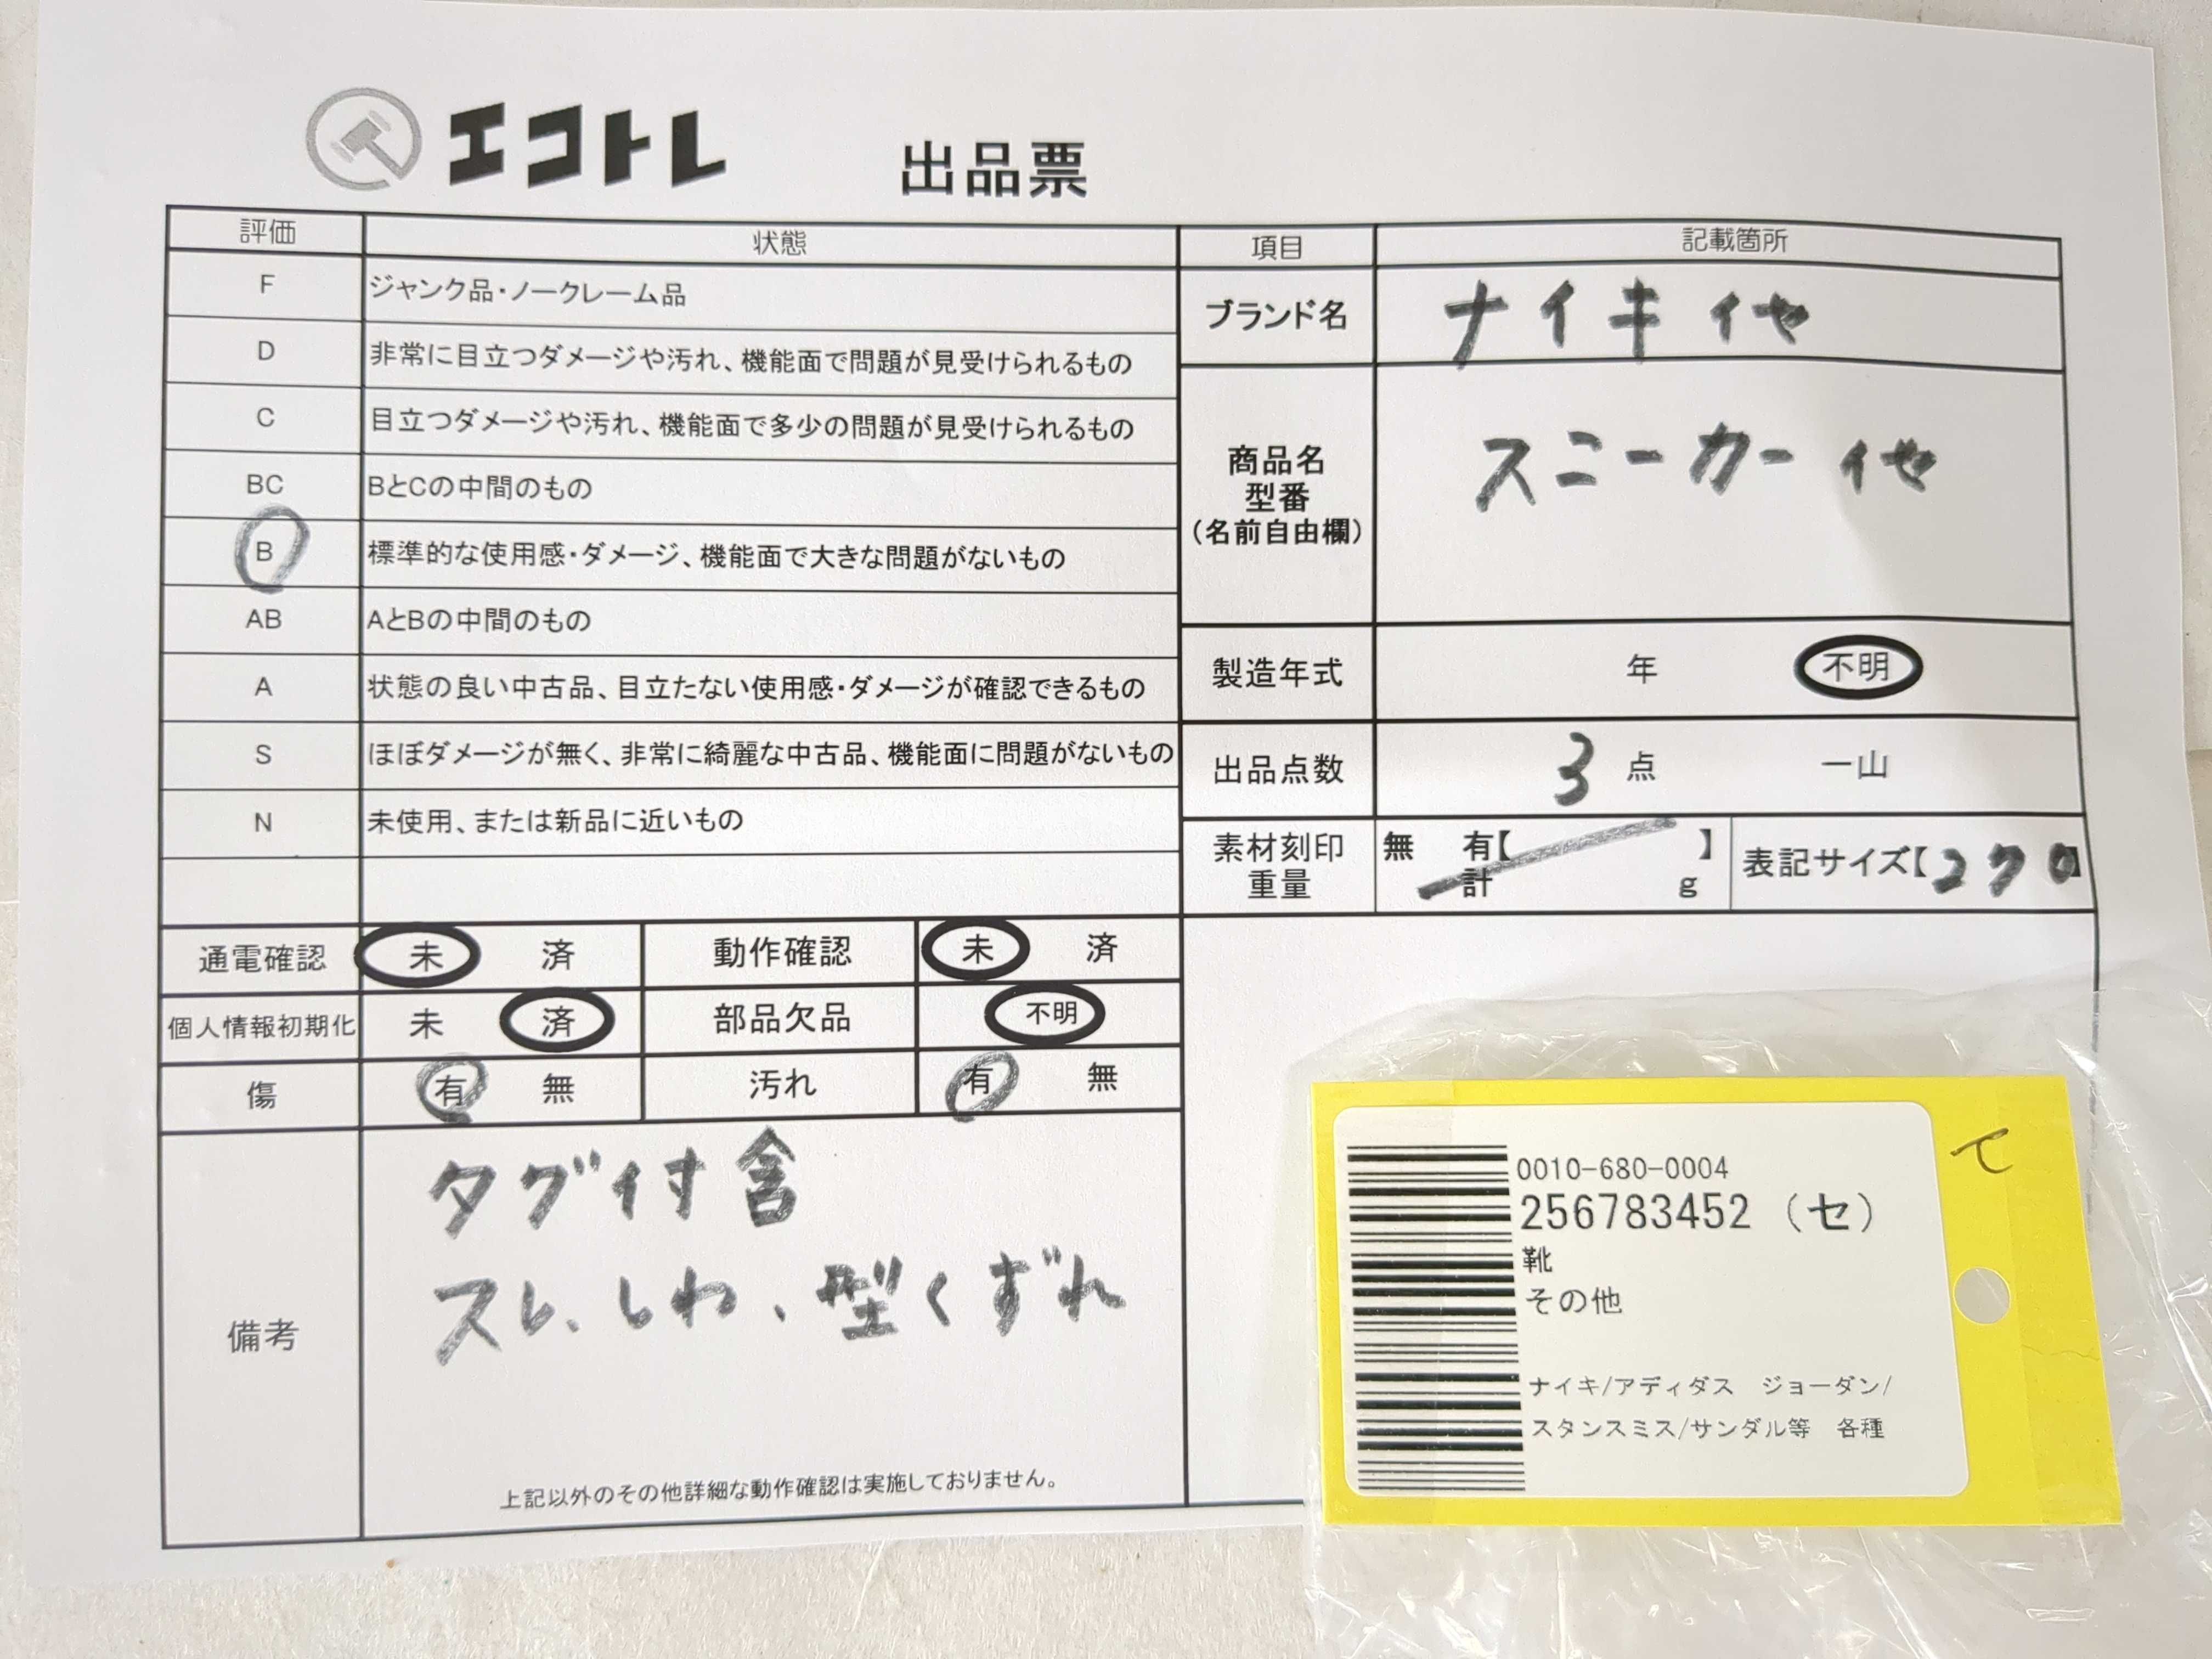 エコトレ 出品票
評価 状態
F ジャンク品・ノークレーム品
D 非常に目立つダメージや汚れ、機能面で問題が見受けられるもの
C 目立つダメージや汚れ、機能面で多少の問題が見受けられるもの
BC BとCの中間のもの
B 標準的な使用感・ダメージ、機能面で大きな問題がないもの
AB AとBの中間のもの
A 状態の良い中古品、目立たない使用感・ダメージが確認できるもの
S ほぼダメージが無く、非常に綺麗な中古品、機能面に問題がないもの
N 未使用、または新品に近いもの
通電確認 未 済 動作確認 未 済
個人情報初期化 未 済 部品欠品 不明
傷 有 無 汚れ 有 無
備考
タグ付含
スレ、しわ、型くずれ
上記以外のその他詳細な動作確認は実施しておりません。
項目 記載箇所
ブランド名 ナイキ他
商品名
型番
(名前自由欄)
スニーカー他
製造年式 年 不明
出品点数 3 点 一山
素材刻印 無 有【 】
重量 計 g
表記サイズ【270】
0010-680-0004
256783452 (セ)
靴
その他
ナイキ/アディダス ジョーダン/
スタンスミス/サンダル等 各種
て